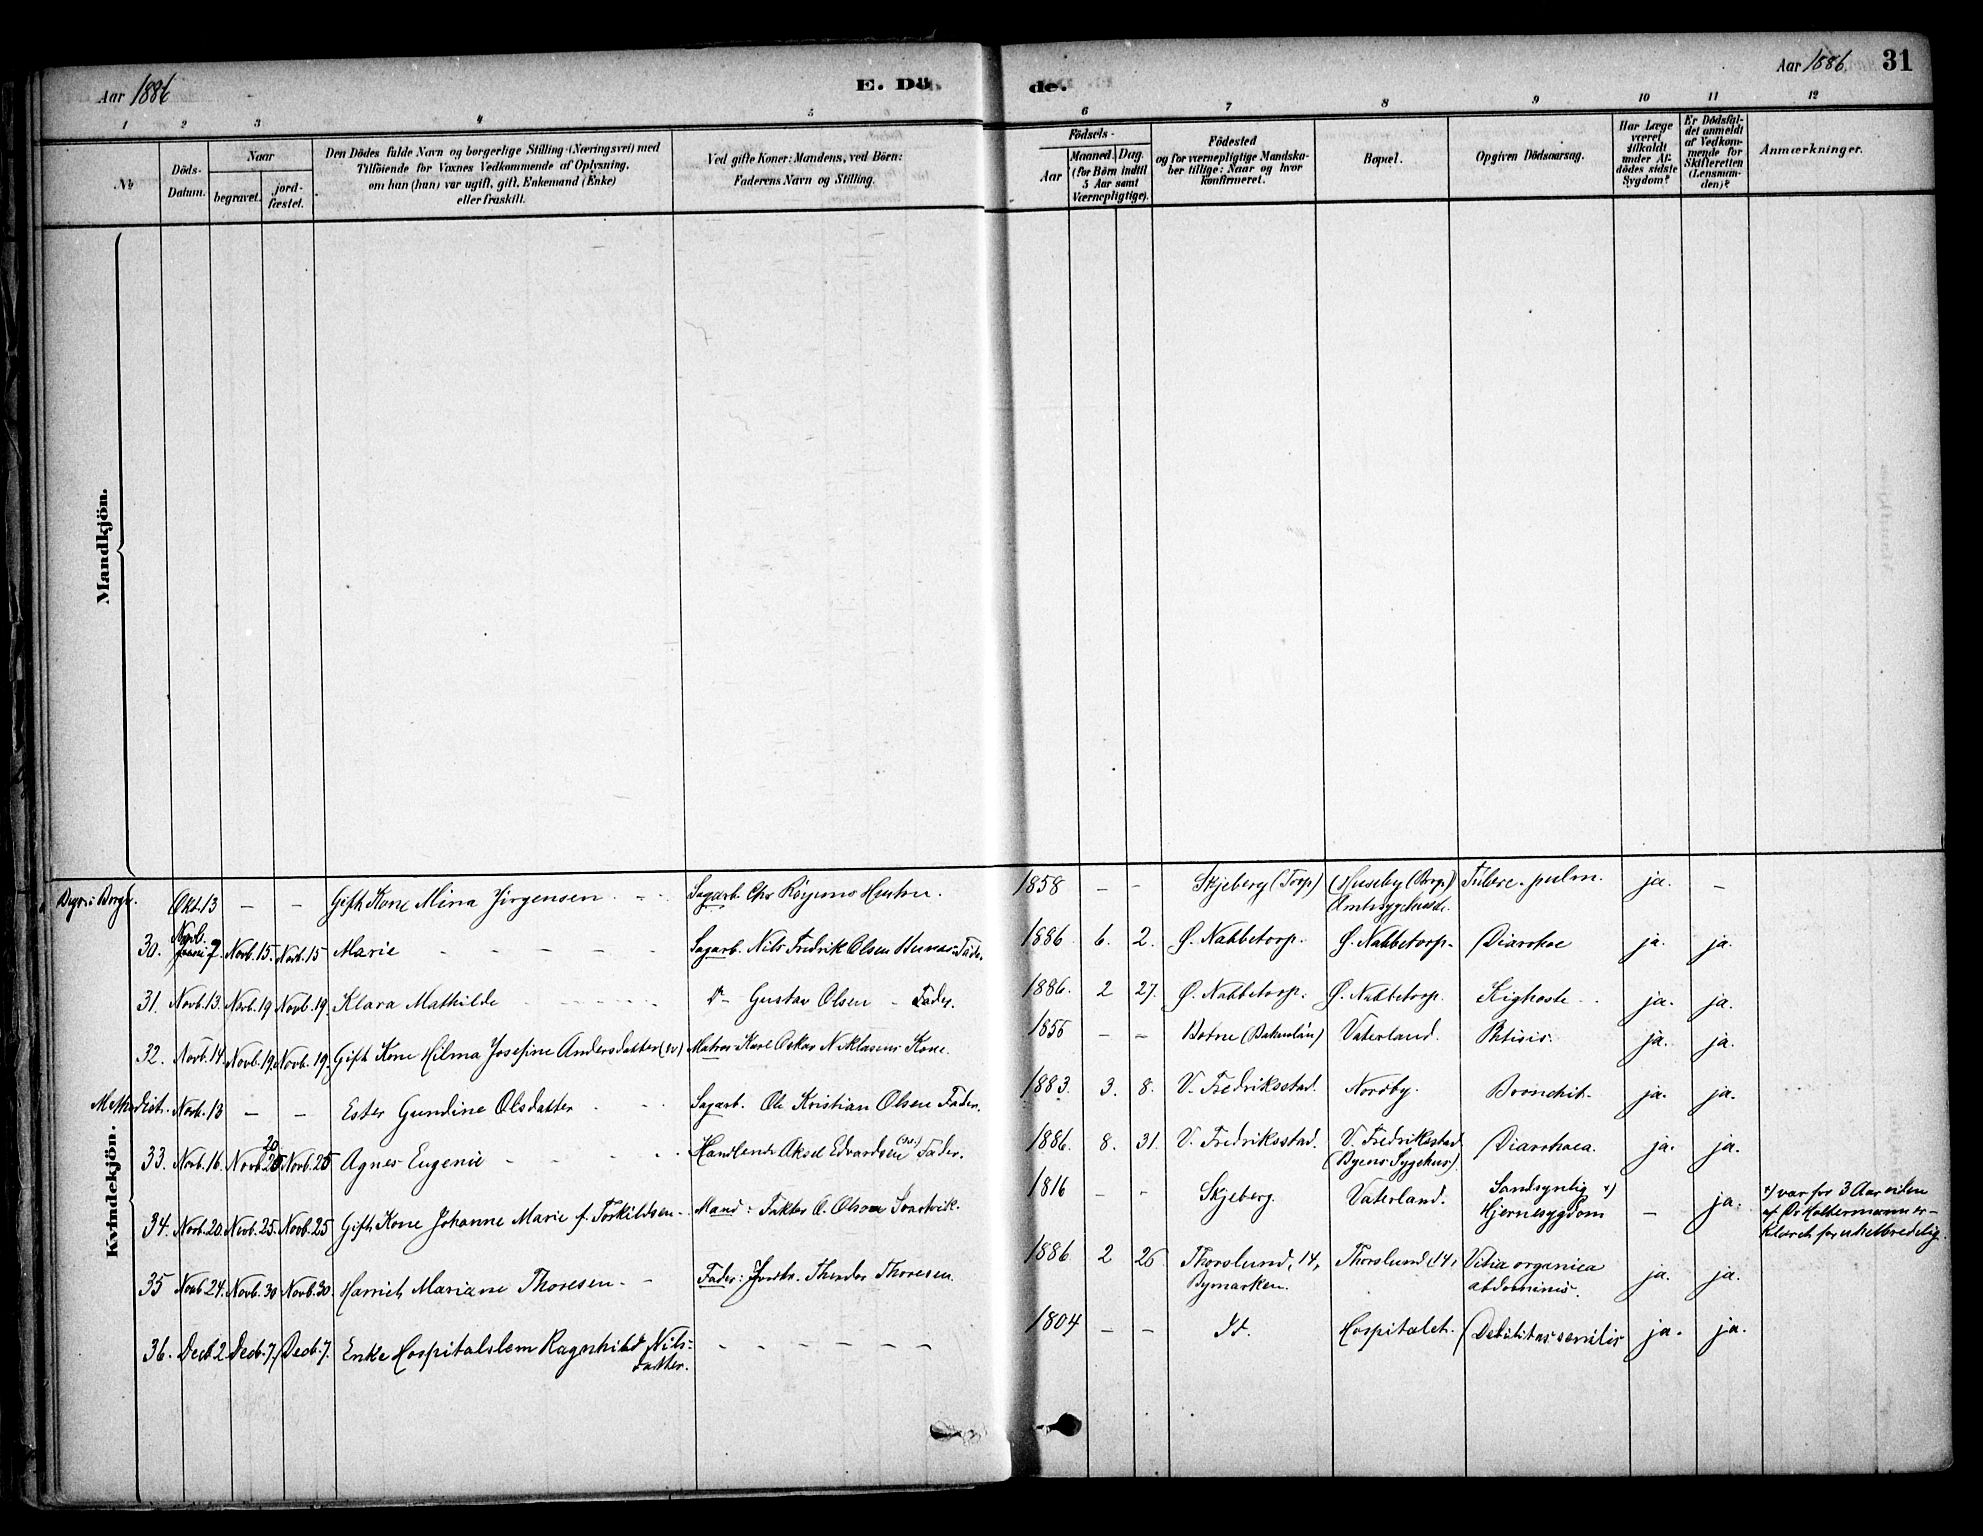 Aar 1886
E. Dö
de.
Aar 1886
31
1 2 3 4 5 6 7 8 9 10 11 12
No
Döds-
Datum.
Naar
begravet.
jord-
fæstet.
Den Dödes fulde Navn og borgerlige Stilling (Næringsvei) med
Tilföiende for Voxnes Vedkommende af Oplysning,
om han (hun) var ugift, gift, Enkemand (Enke)
eller fraskilt.
Ved gifte Koner: Mandens, ved Börn:
Faderens Navn og Stilling.
Födsels-
Aar
Maaned.
Dag.
(for Börn indtil
5 Aar samt
Værnepligtige).
Födested
og for værnepligtige Mandska-
ber tillige: Naar og hvor
konfirmeret.
Bopæl.
Opgiven Dödsaarsag.
Har Læge
været
tilkaldt
under Af-
dödes sidste
Sygdom?
Er Dödsfal-
det anmeldt
af Vedkom-
mende for
Skifteretten
(Lensman-
den)?
Anmærkninger.
Mandkjön.
Kvindekjön.
Okt. 13 — — Gift Kone Mina Jörgensen Sagarb. Chr 1858 — — Skjeberg (Torp) (Huseby (Borge) Tuberc. pulm. ja. —
Amtssygehuset.
30. Novb. 7 Novb. 15. Novb. 15 Marie Sagarb. Nils Fredrik Olsen Fader. 1886 6. 2. Ö. Nabbetorp. Ö. Nabbetorp. Diarrhoe ja. ja.
31. Novb. 13. Novb. 19 Novb. 19. Klara Mathilde D- Gustav Olsen - Fader. 1886. 2 27. Ö. Nabbetorp. Ö. Nabbetorp. Kighoste ja. ja.
32. Novb. 14 Novb. 19. Novb. 19. Gift Kone Hilma Josefine Andersdatter Matros Karl Oskar Niklasens Kone. — — Vaterland. Phtisis. ja. ja.
Methodist. Novb. 13 — — Ester Gundine Olsdatter Sagarb. Ole Kristian Olsen Fader. 1883. 3. 8. V. Fredriksstad. Nordby. Bronchit. ja. ja.
33. Novb. 16. Novb. 20 Novb. 25 Agnes Eugenie Handlende Aksel Edvardsen Fader. 1886. 8. 31. V. Fredriksstad. V. Fredriksstad Diarrhoea. ja. ja.
(Byens Sygehus).
34. Novb. 20. Novb. 25. Novb. 25 Gift Kone Johanne Marie f. Torkildsen Mand: Faktor O. Olsen 1816 — — Skjeberg. Vaterland. Sandsynlig x)
Hjernesygdom — ja.
x) var for 3 Aar siden
af Dr. er-
klæret for uhelbredelig.
35 Novb. 24. Novb. 30 Novb. 30. Harriet Mariane Thoresen. — Fader: Theodor Thoresen. 1886 2 26 Thorslund, 14, Thorslund 14, Vitia organica ja. ja.
Bymarken. abdominis.
36. Decb. 2 Decb. 7. Decb. 7. Enke Hospitalslem Ragnhild Nils-
datter. 1804 — — Hospitalet. Debilitas senilis ja. ja.